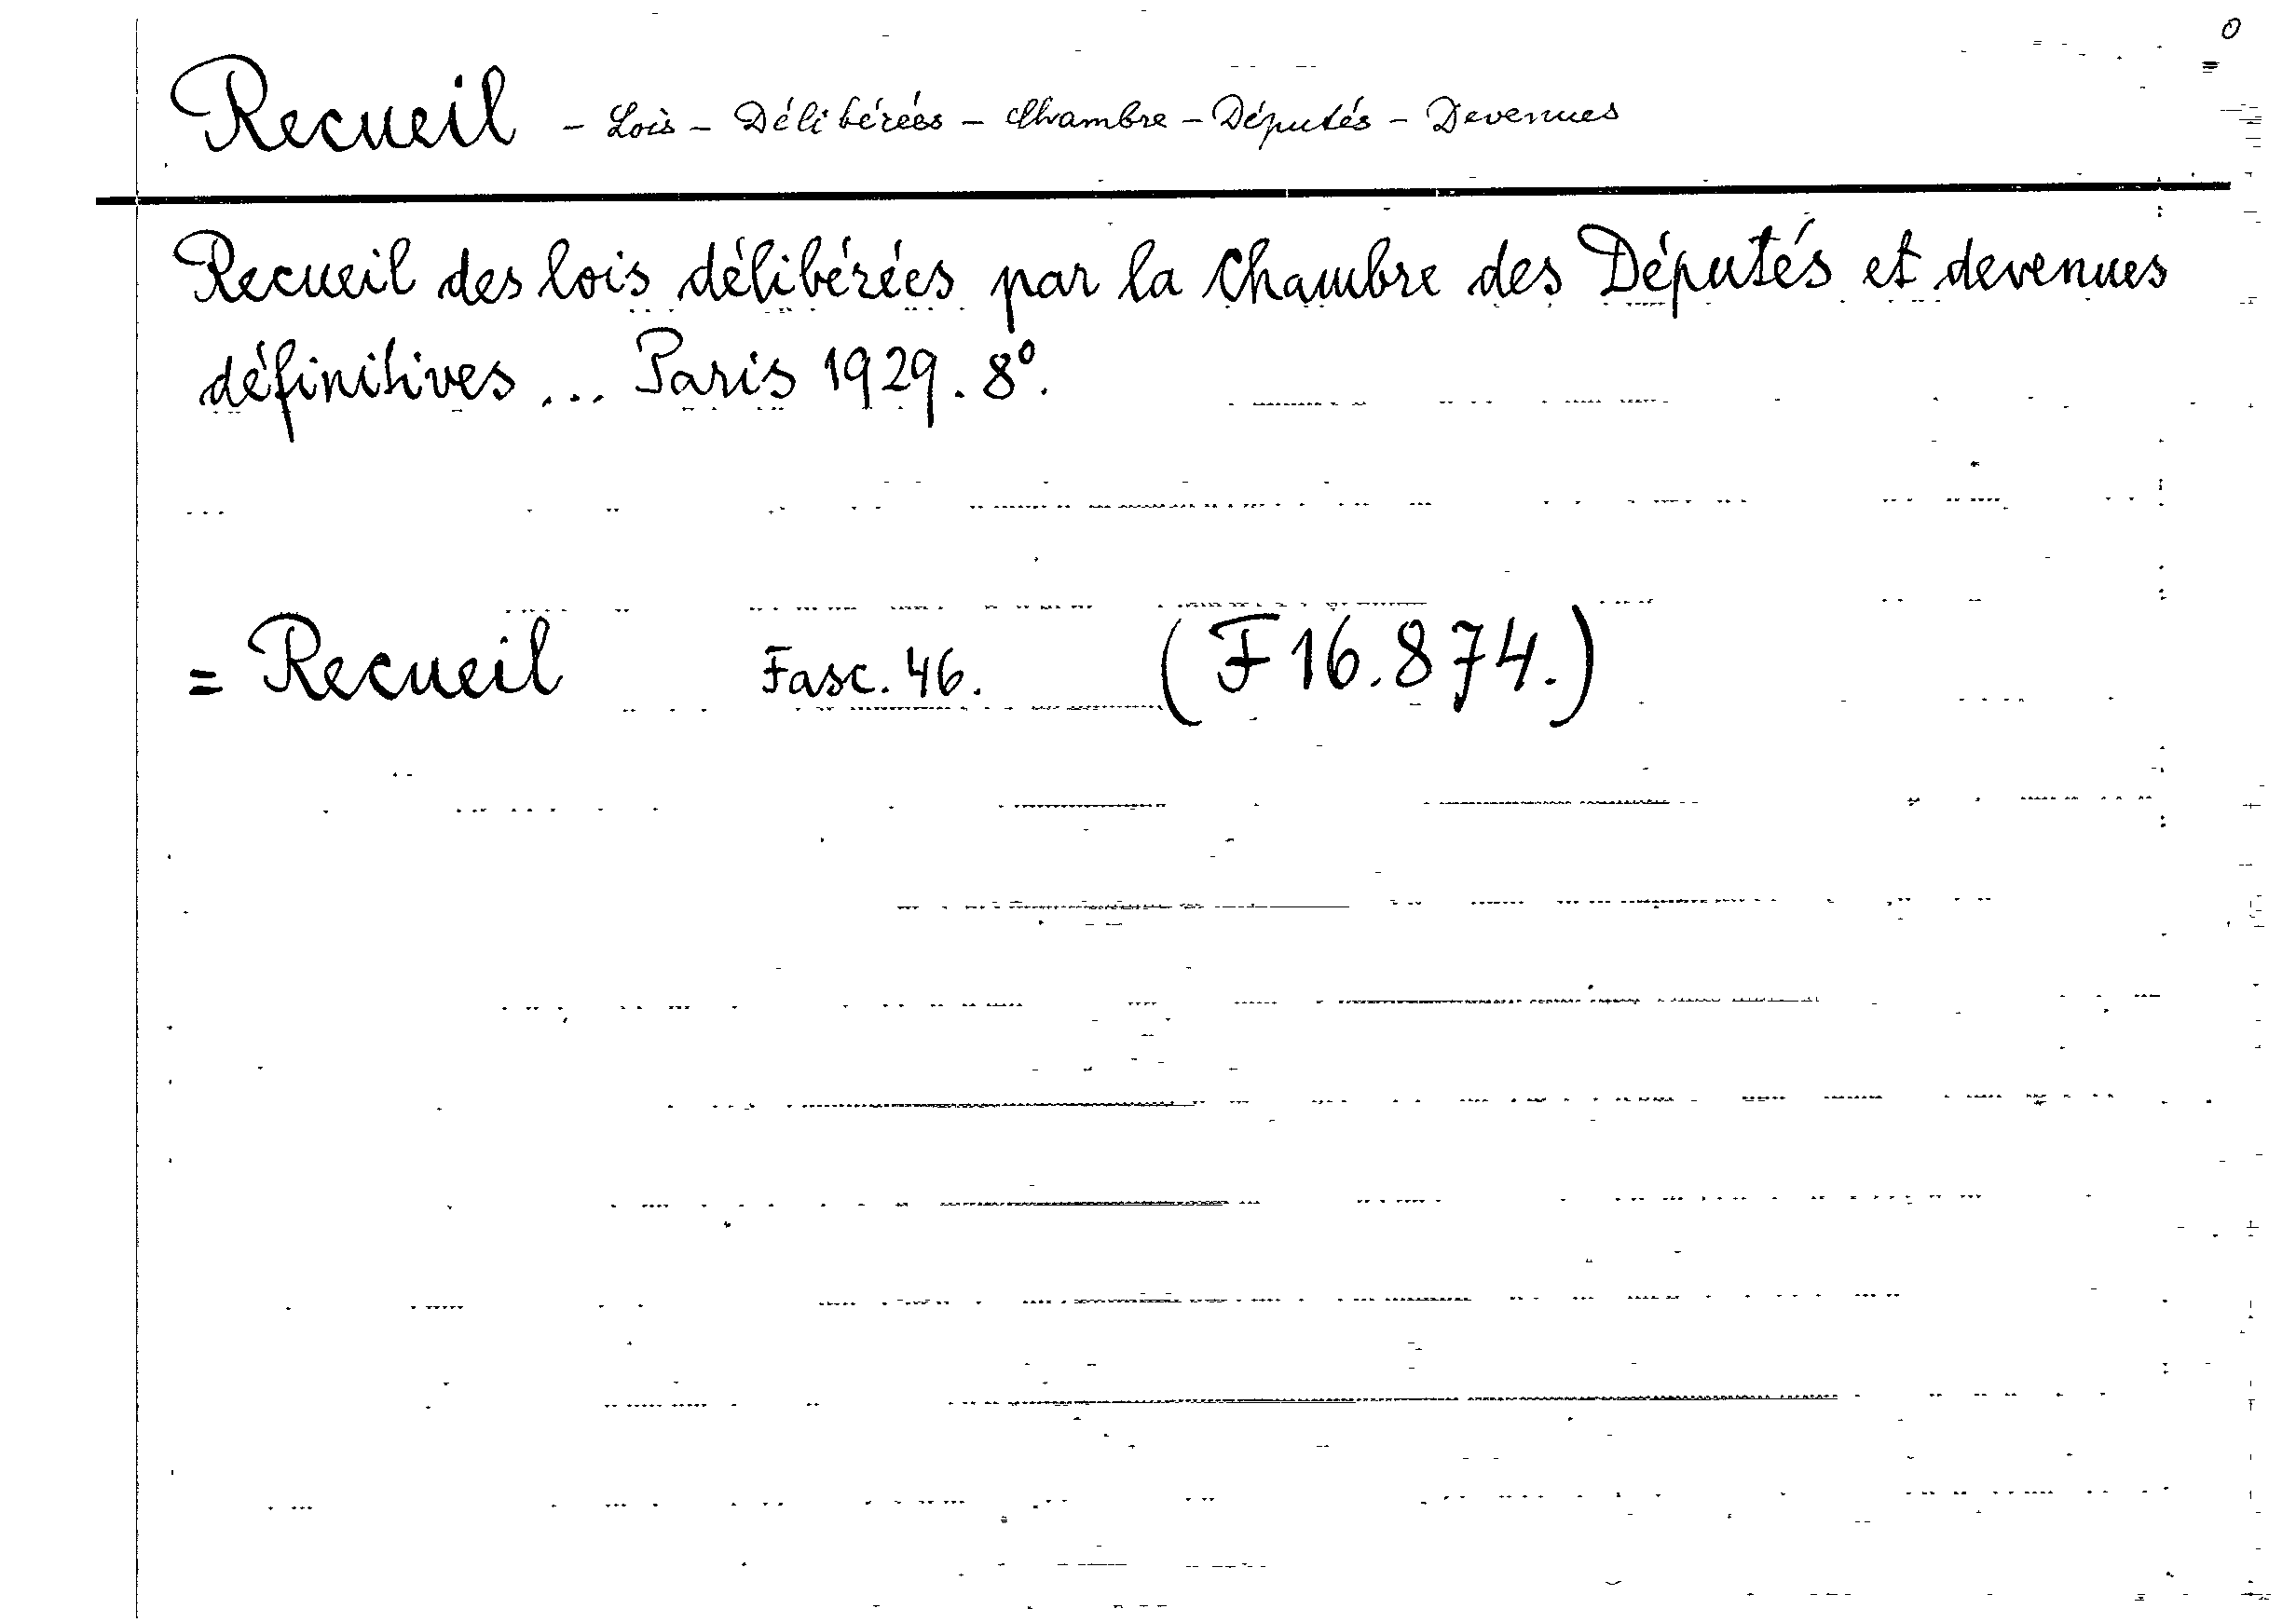 0
Recueil - Lois - Délibérées - Chambre - Députés - Devenues
Recueil des lois délibérées par la Chambre des Députés et devenues
définitives ... Paris 1929. 8°.
= Recueil Fasc. 46. (F 16.874.)